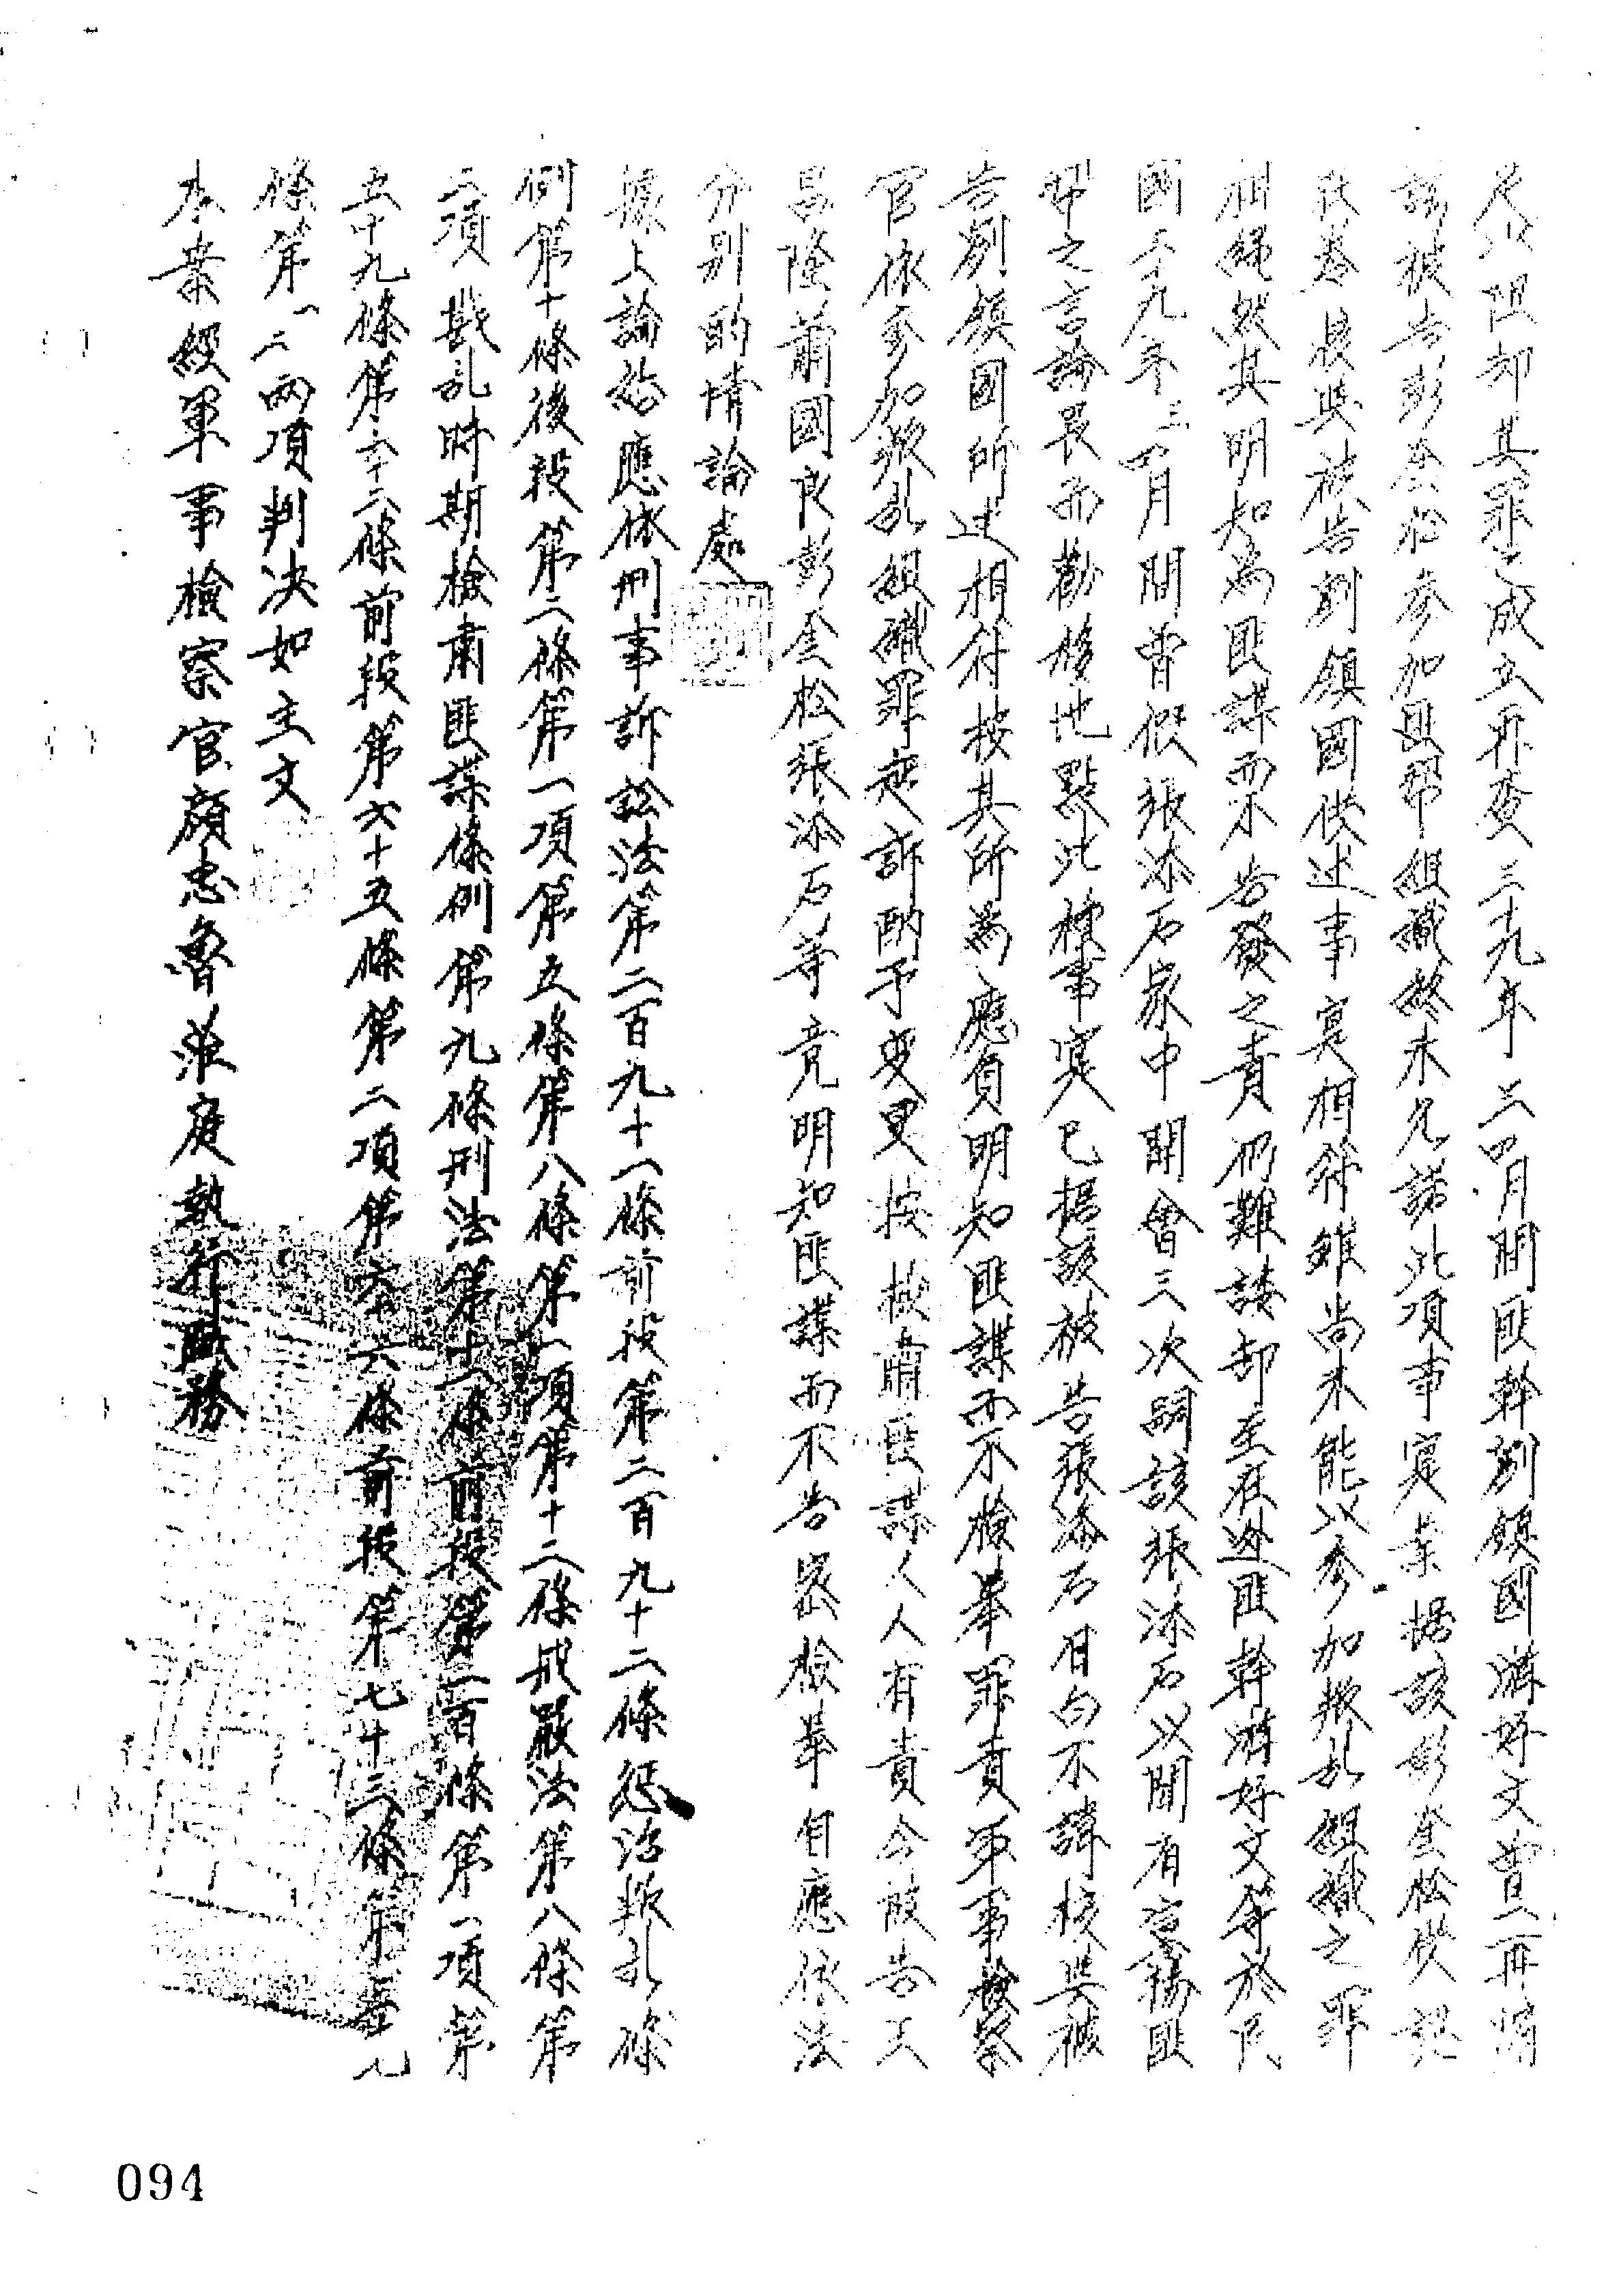 足以阻却其罪之成立再查三十九年三四月間匪幹劉鎮國溝好文曾一再嗾
該被告彭金松參加匪幫組織終未允諾此項事實業據該彭金松供認
不諱核與被告劉鎮國供述事實相符雖尚未能以參加叛乱組織之罪
相繩然其明知為匪諜而不告發之責仍難諉卻至在逃匪幹溝好文等於民
國三十九年三四月間曾假張添石家中開會三次詞該張添石以聞有宣揚匪
幫之言論畏而勸移地點此種事實已據該被告張添石自白不諱核與被
告劉鎮國所述相符按其所為應負明知匪諜而不檢舉罪責軍事檢察
官依參加叛乱組織罪起訴酌予變更按檢肅匪諜人人有責今被告王
昌隆蕭國良彭金松張添石等竟明知匪諜而不告密檢舉自應依法
分別酌情論處
據上論結應依刑事訴訟法第二百九十一條前段第二百九十二條懲治叛乱條
例第十條後段第二條第一項第五條第八條第一項第十二條戒嚴法第八條第
二項戡乱時期檢肅匪諜條例第九條刑法第十一條前段第二百條第一項第
五十九條第六十二條前段第六十五條第二項第六十六條前段第七十三條第
條第一二兩項判決如主文
本案經軍事檢察官顏忠魯蒞庭執行職務
094